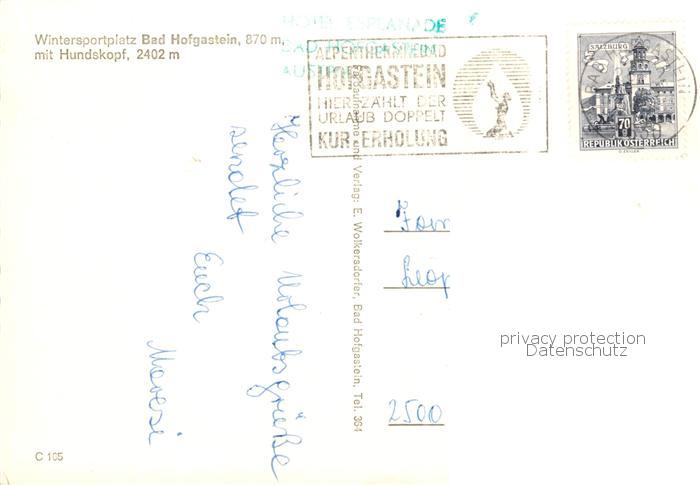 Wintersportplatz Bad Hofgastein, 870 m,
mit Hundskopf, 2402 m
HOTEL ESPLANADE
BAD HOFGASTEIN
ALPENTHERMALBAD
HOFGASTEIN
HIER ZÄHLT DER
URLAUB DOPPELT
KUR ERHOLUNG
SALZBURG
70
REPUBLIK ÖSTERREICH
Herzliche Urlaubsgrüße
sendet
Euch
und Verlag: E. Wolkersdorfer, Bad Hofgastein, Tel. 364
Fam
Leop
2500
privacy protection
Datenschutz
C 105